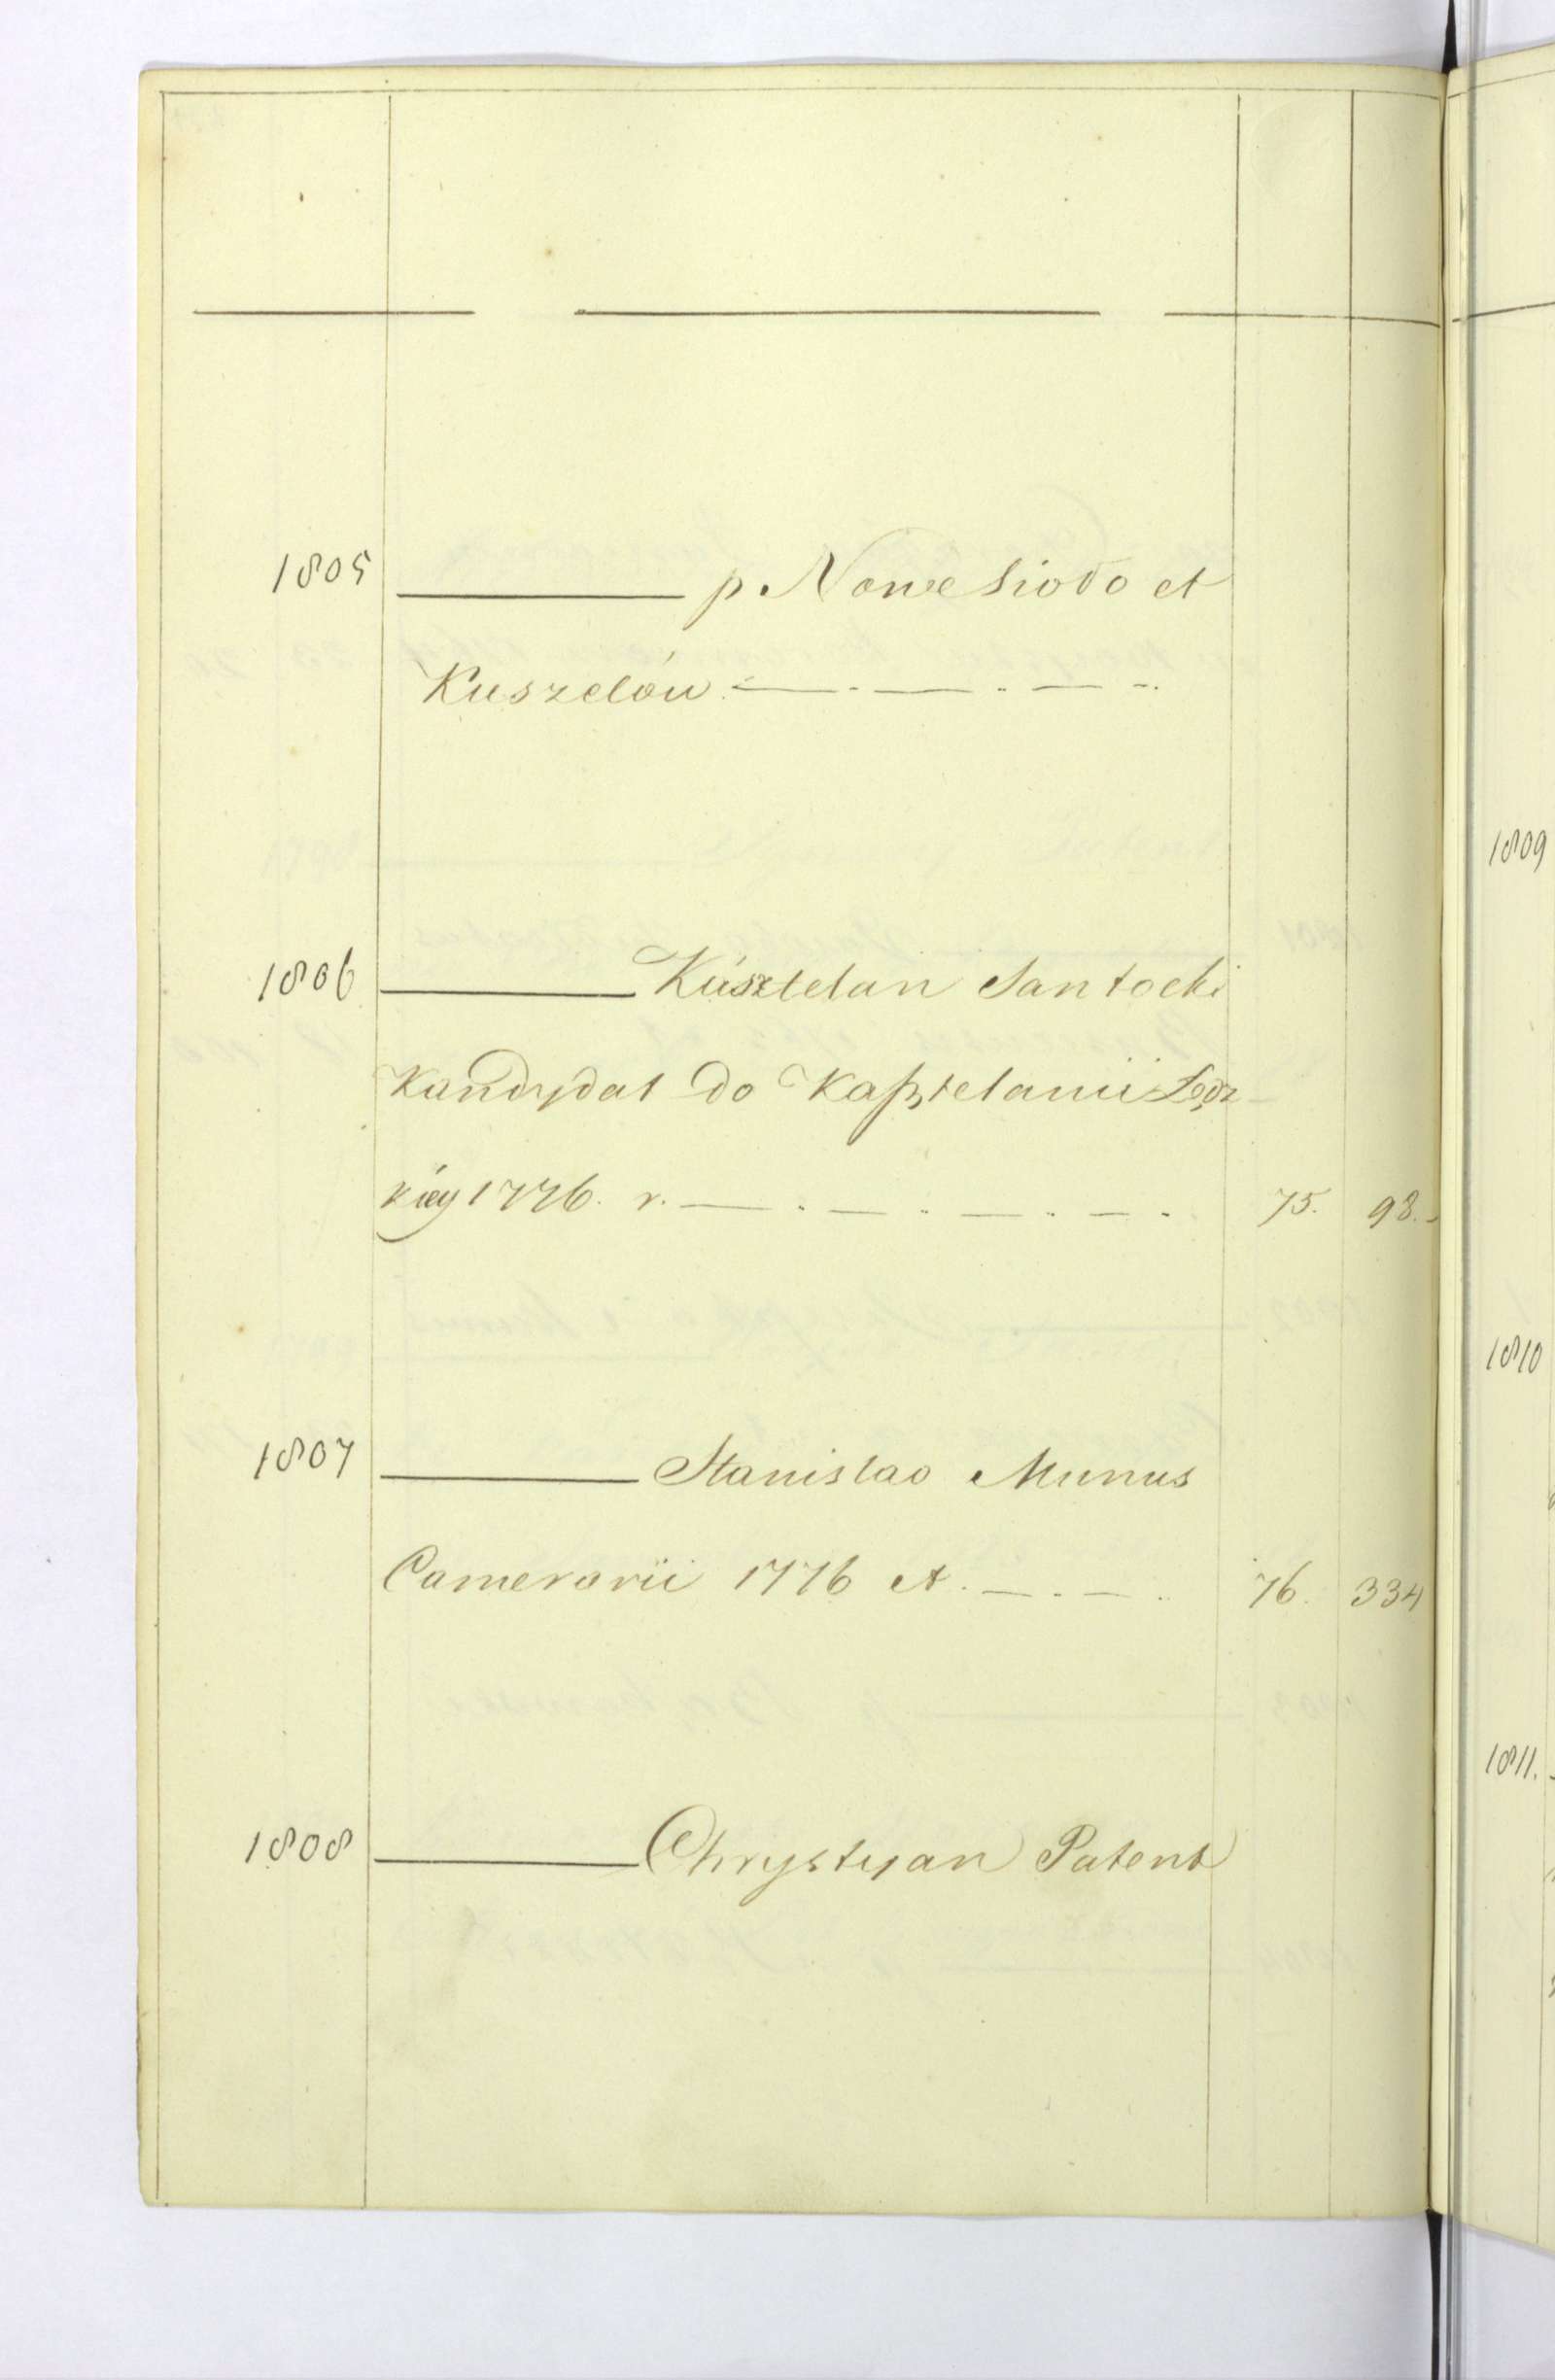 1805 ——— p. Nowesiodo et
Kuszelów — . — . — .
1806 ——— Kasztelan Santocki
Kandydat do Kaßtelanii Lędz-
kiey 1776. r. — . — . — . — . 75. 98.
1807 ——— Stanislao Munus
Camerarii 1776 A. — . — . 76. 334
1808 ——— Chrystyan Patent
1809
1810
1811.